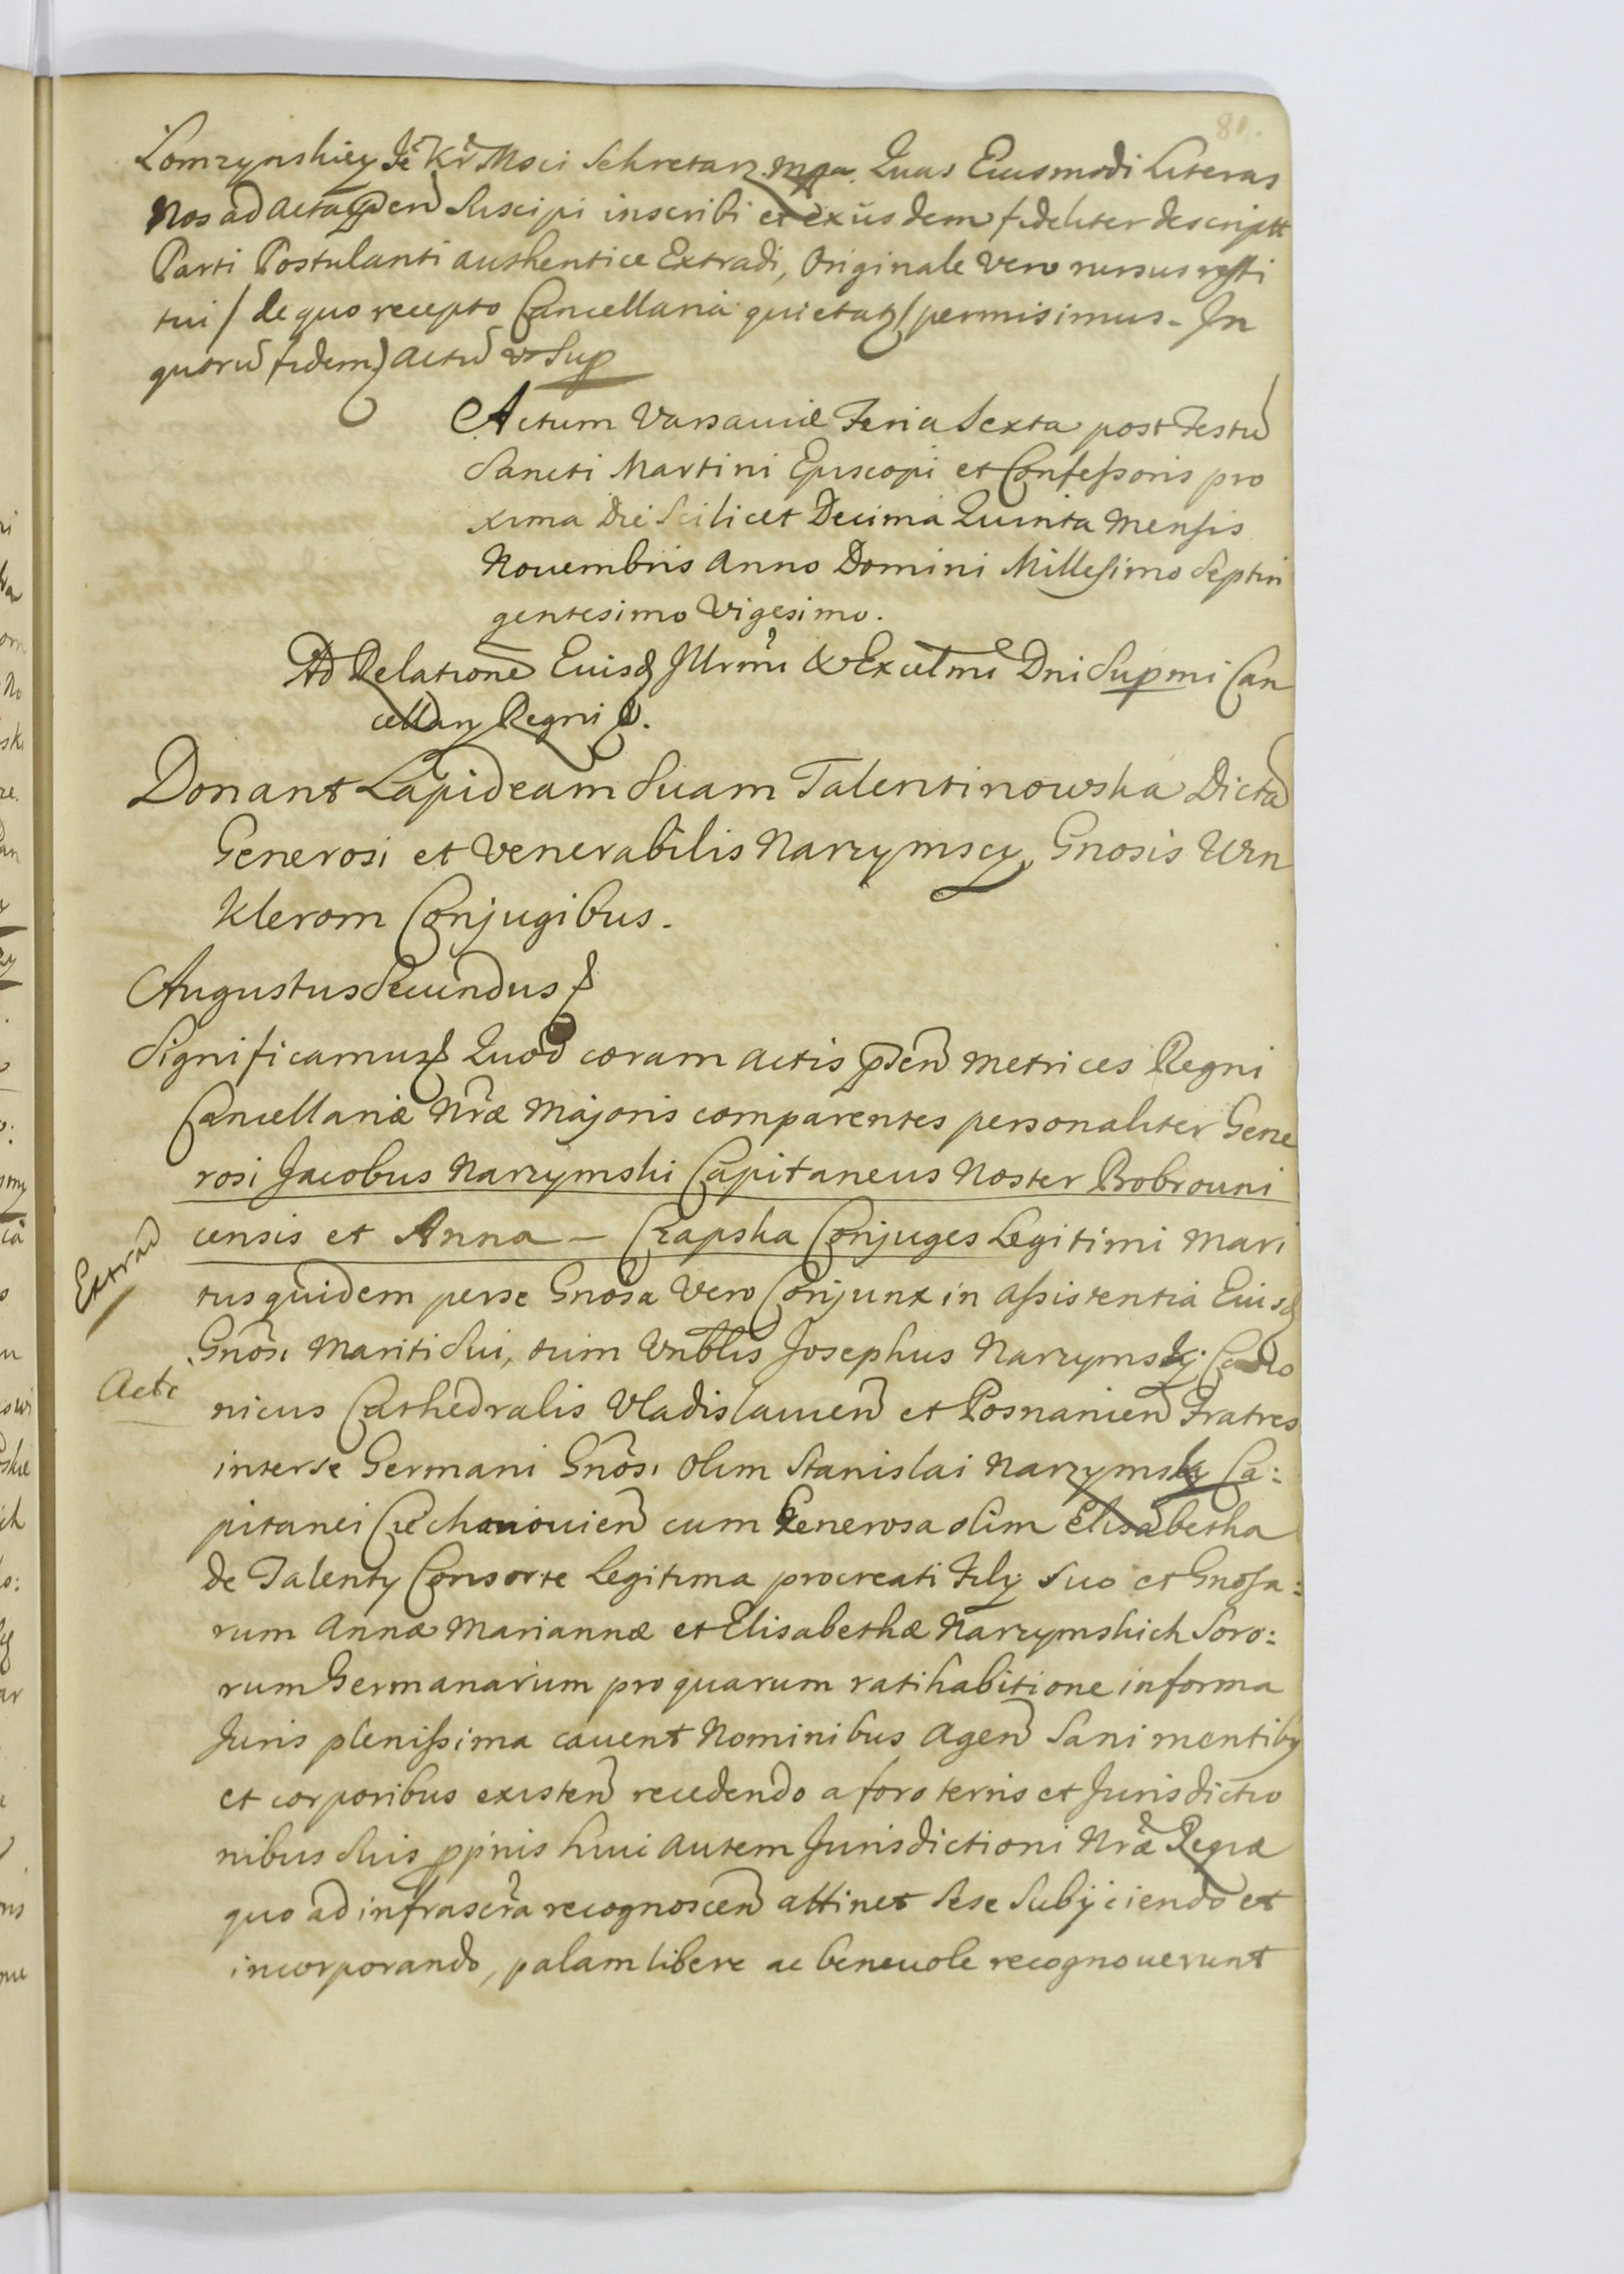 81.
Łomzynskiey Je Kr Msci Sekretarz mpa. Quas Eiusmodi Literas
Nos ad acta pñ Suscipi inscribi et ex iisdem fideliter descriptt
Parti Postulanti authentice Extradi, Originale vero rursus resti
tui / de quo recepto Cancellaria quietatꝫ / permisimus. In
quorũ fidem) Actũ ut Sup
Actum Varsauiæ Feria Sexta post Festũ
Sancti Martini Episcopi et Confessoris pro
xima Die Scilicet Decima Quinta Mensis
Nouembris Anno Domini Millesimo Septin
gentesimo Vigesimo.
Ad Relationẽ Eiusd Illrmi & Excelmi Dni Supmi Can
cellarÿ Regni &.
Donant Lapideam Suam Talentinowska Dictã
Generosi et Venerabilis Narzymscy, Gnosis Win
klerom Conjugibus.
Augustus Secundus &
Significamus & Quod coram actis pñ Metrices Regni
Cancellariæ Nræ Majoris comparentes personaliter Gene
rosi Jacobus Narzymski Capitaneus Noster Bobrouni
censis et Anna – Czapska Conjuges Legitimi Mari
tus quidem per se Gnosa Vero Conjunx in assistentia Eiusd
Gnosi Mariti Sui, tum Vnblis Josephus Narzymsky Cano
nicus Cathedralis Vladislauieñ et Posnanieñ Fratres
inter se Germani Gnosi olim Stanislai Narzymsky Ca:
pitanei Ciechanouieñ cum Generosa olim Elisabetha
de Talenty Consorte Legitima procreati Filÿ Suo et Gnosa:
rum Annæ Mariannæ et Elisabethæ Narzymskich Soro:
rum Germanarum pro quarum ratihabitione in forma
Juris plenissima cauent Nominibus ageñ Sani mentibꝫ
et corporibus existeñ recedendo a foro terris et Jurisdictio
nibus Suis ppriis huic autem Jurisdictioni Nræ Regiæ
quo ad infrascra recognosceñ attinet Sese Subijciendo et
incorporando, palam libere ac beneuole recognouerunt
Extrad
Actc